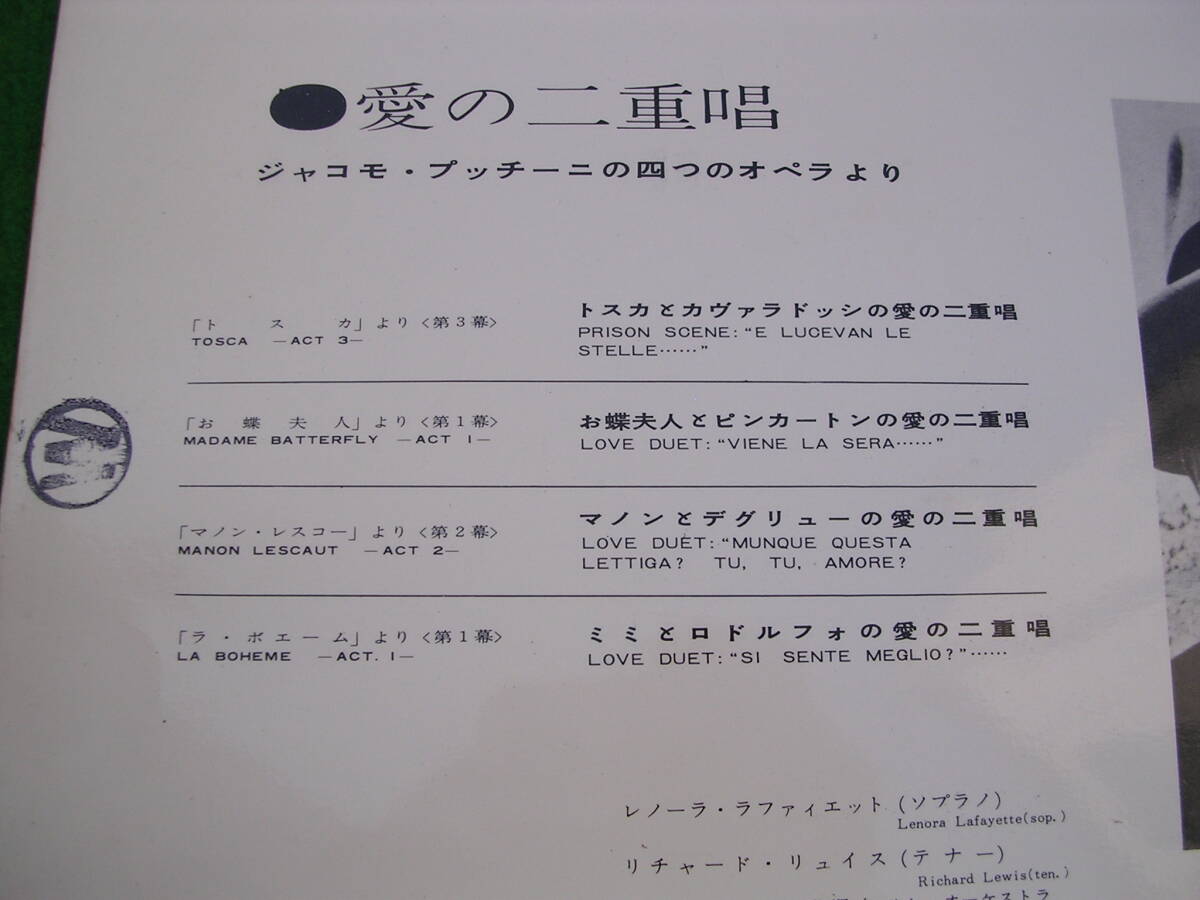 ●愛の二重唱
ジャコモ・プッチーニの四つのオペラより
「トスカ」より〈第3幕〉
TOSCA —ACT 3—
トスカとカヴァラドッシの愛の二重唱
PRISON SCENE: “E LUCEVAN LE
STELLE……”
「お蝶夫人」より〈第1幕〉
MADAME BATTERFLY —ACT 1—
お蝶夫人とピンカートンの愛の二重唱
LOVE DUET: “VIENE LA SERA……”
「マノン・レスコー」より〈第2幕〉
MANON LESCAUT —ACT 2—
マノンとデグリューの愛の二重唱
LOVE DUET: “MUNQUE QUESTA
LETTIGA? TU, TU, AMORE?
「ラ・ボエーム」より〈第1幕〉
LA BOHEME —ACT. 1—
ミミとロドルフォの愛の二重唱
LOVE DUET: “SI SENTE MEGLIO?”……
レノーラ・ラファィエット (ソプラノ)
Lenora Lafayette(sop.)
リチャード・リュイス (テナー)
Richard Lewis(ten.)
オーケストラ